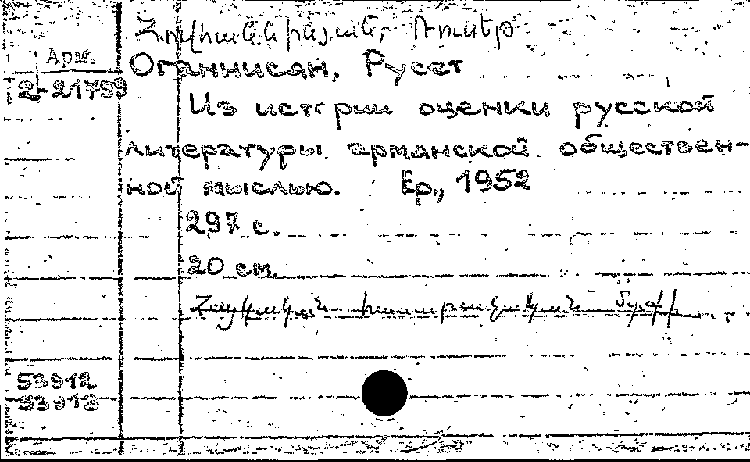 Հովհաննիսյան, Ռուսեթ
Арм.
Оганнисян, Русет
2-21759
Из истории оценки русской
литературы армянской обществен-
ной мыслью. Ер., 1952
297 с.
20 см.
Հայկական
53912
53913